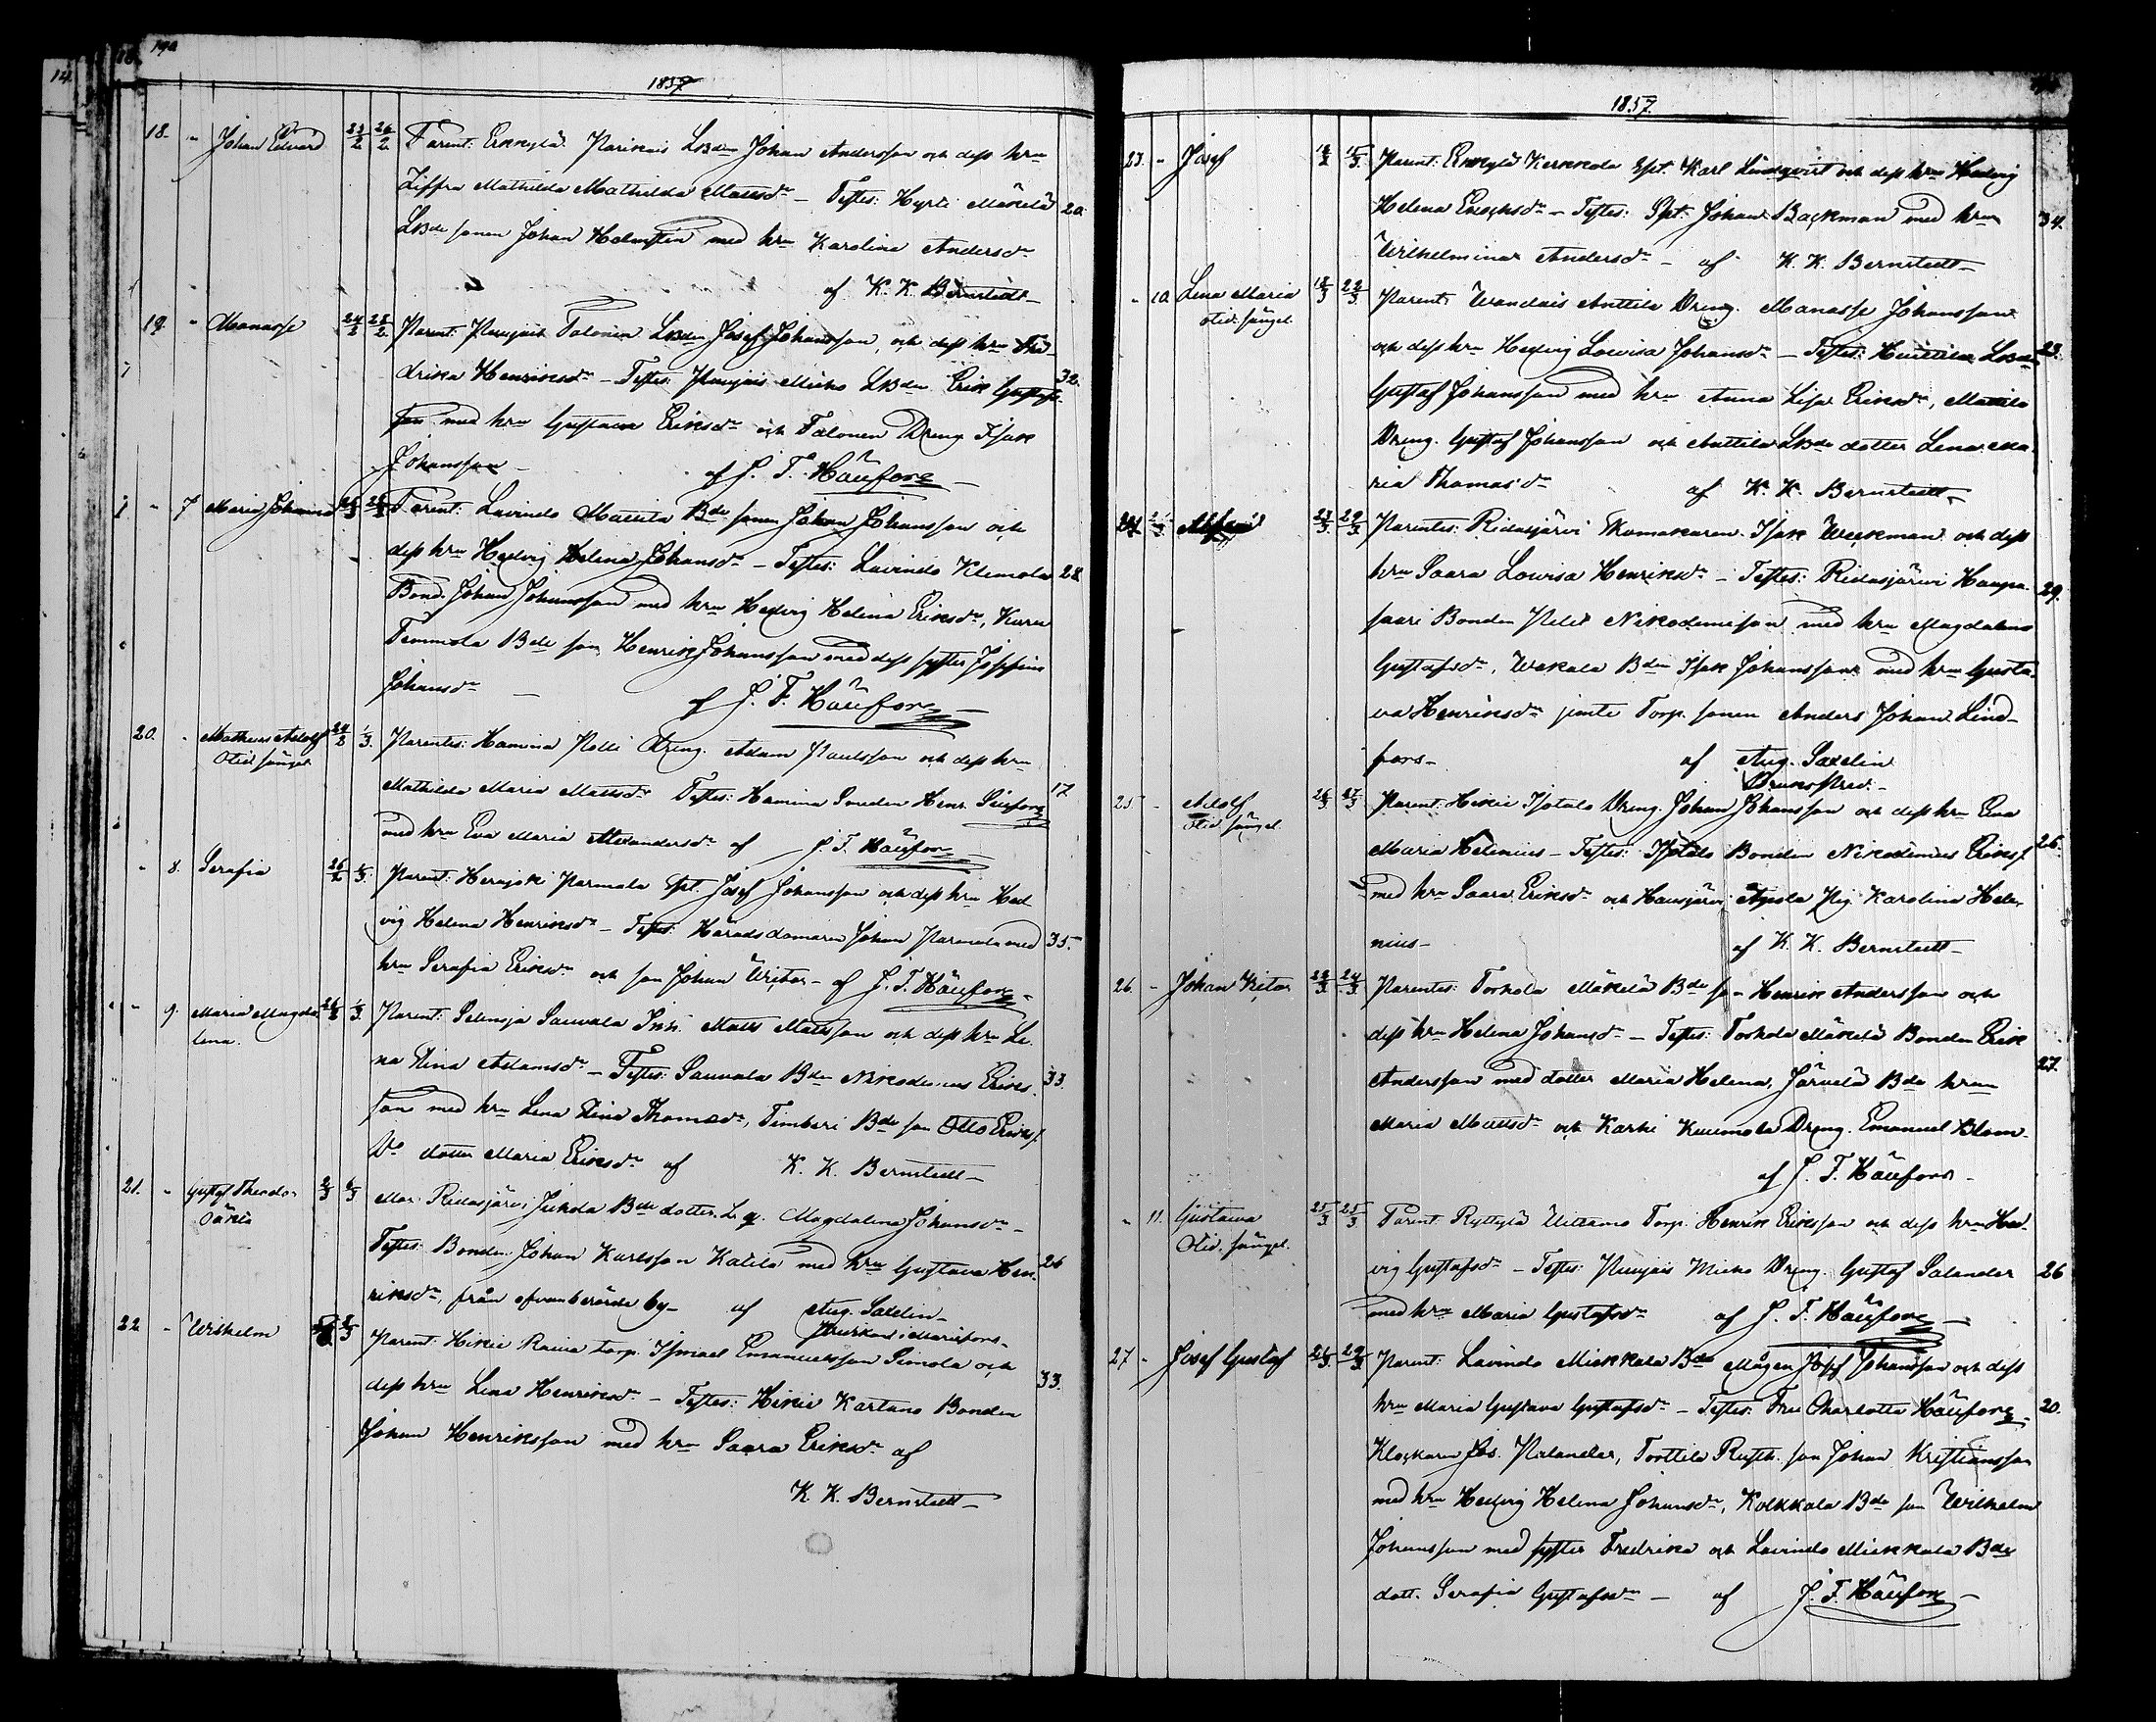 14
18
190
1857
18. " Johan Edvard 23/2 26/2 Parent: Erkkylä Parikais LBden Johan Andersson och dess hru
Ziffra Mathilda Mathilda Mattsdr – Testes: Hyrti Mäkelä 20.
LBde sonen Johan Holmstén med hru Karolina Andersdr
af K. K. Bernstedt
19. " Manasse 24/2 28/2 Parent: Puujais Talonen LBden Josef Johansson, och dess hru Fre-
drika Henriksdr – Testes: Puujais Micko LBden Erik Gustafs- 32.
son med hru Gustava Eriksdr och Talonen Dreng Isak
Johansson – af J. F. Häufors
" 7 Maria Johanna Parent: Lavindo Mattila Bde sonen Johan Johansson och
dess hru Hedvig Helena Johansdr – Testes: Lavindo Klemola 28.
Bond. Johan Johansson med hru Hedvig Helena Eriksdr, Kuru
Temmola Bde son Henrik Johansson med dess syster Josefina
Johansdr – af J. F. Häufors
20. " Mathias Adolf 24/2 1/3. Parentes: Hamina Pelli Dreng. Adam Paulsson och dess hru
Otid. sängel. Mathilda Maria Mattsdr Testes: Hamina Smeden Henr. 17.
med hru Eva Maria Alexandersdr af J. F. Häufors
" 8. Serafia 26/2 1/3. Parent: Herajoki Parmala Spt. Josef Johansson och dess hru Hed-
vig Helena Henriksdr – Testes: Häradsdomaren Johan Parmala med 35.
hru Serafia Eriksdr och son Johan Victor – af J. F. Häufors
" 9. Maria Magda- 26/2 1/3. Parent: Selänoja Sauvala Inh. Matts Mattsson och dess hru Le-
lena. na Stina Adamsdr – Testes: Sauvala Bden Nikodemus Eriks- 33.
son med hru Lena Stina Thomasdr, Timberi Bde son Otto Eriks.
Do dotter Maria Eriksdr af K. K. Bernstedt –
21. " Gustaf Theodor 2/3 6/3 Mor. Ridasjärvi Jukola Bde dotter L. q. Magdalena Johansdr –
Oäkta Testes: Bonden Johan Karlsson Katila med hru Gustava Hen- 26
riksdr, från ofvanberörde by – af Aug. Saxelin –
22 – Wilhelm Parent: Hikiä Raiva torp. Ismael Emanuelsson Simola och
dess hru Lena Henriksdr – Testes: Hikiä Kartano Bonden 33.
Johan Henriksson med hru Saara Eriksdr af
K. K. Bernstedt –
1857.
23. " Josef 15/3. Parent: Erkkylä Kerkkola Spt. Karl Lindqvist och dess hru Hedvig
Helena Enochsdr – Testes: Spt. Johan Backman med hru 34.
Wilhelmina Andersdr – af K. K. Bernstedt –
" 10. Lena Maria 18/3 22/3. Parent: Wandais Anttila Dreng. Manasse Johansson
Otid. sängel. och dess hru Hedvig Lowisa Johansdr – Testes: LBden 23.
Gustaf Johansson med hru Anna Lisa Eriksdr, Mattila
Dreng. Gustaf Johansson och Anttila LBde dotter Lena Ma-
ria Thomasdr af K. K. Bernstedt –
24. Parentes: Ridasjärvi Skomakaren Isak Weckman och dess
hru Saara Lowisa Henriksdr – Testes: Ridasjärvi Haapa- 29.
saari Bonden Petter Nikodemisson med hru Magdalena
Gustafsdr, Wekala Bden Isak Johansson med hru Gusta-
va Henriksdr jemte Torp. sonen Anders Johan Lind-
fors – af Aug. Saxelin
Brukspred. –
25. – Adolf Parent: Hikiä Isotalo Dreng. Johan Johansson och dess hru Eva
Otid. sängel. Maria Helenius – Testes: Isotalo Bonden Nikodemus Eriks. 26.
med hru Saara Eriksdr och Hausjärvi Anola Pig. Karolina Hele-
nius – af K. K. Bernstedt –
26. – Johan Victor 22/3. 24/3. Parentes: Torhola Mäkelä Bde son Henrik Andersson och
dess hru Helena Johansdr – Testes: Torhola Mäkelä Bonden Erik
Andersson med dotter Maria Helena, Järvelä Bde hrun 27.
Maria Mattsdr och Karhi Kuumola Dreng. Emanuel Blom –
af J. F. Häufors –
" 11. Gustawa 25/3. 25/3. Parent: Ryttylä Uittamo Torp. Henrik Eriksson och dess hru Hed-
Otid. sängel. vig Gustafsdr – Testes: Puujais Micko Dreng. Gustaf Salander 26
med hru Maria Gustafsdr af J. F. Häufors –
27 – Josef Gustaf 29/3. Parent: Lavindo Mickkala Bde Mågen Josef Johansson och dess
hru Maria Gustava Gustafsdr – Testes: Fru Charlotta Häufors – 20.
Klockaren Jos. Palander, Torttila Rusth. son Johan Kristiansson
med hru Hedvig Helena Johansdr, Kolkkala Bde son Wilhelm
Johansson med syster Fredrika och Lavindo Mickkala Bde
dott. Serafia Gustafsdr – af J. F. Häufors –